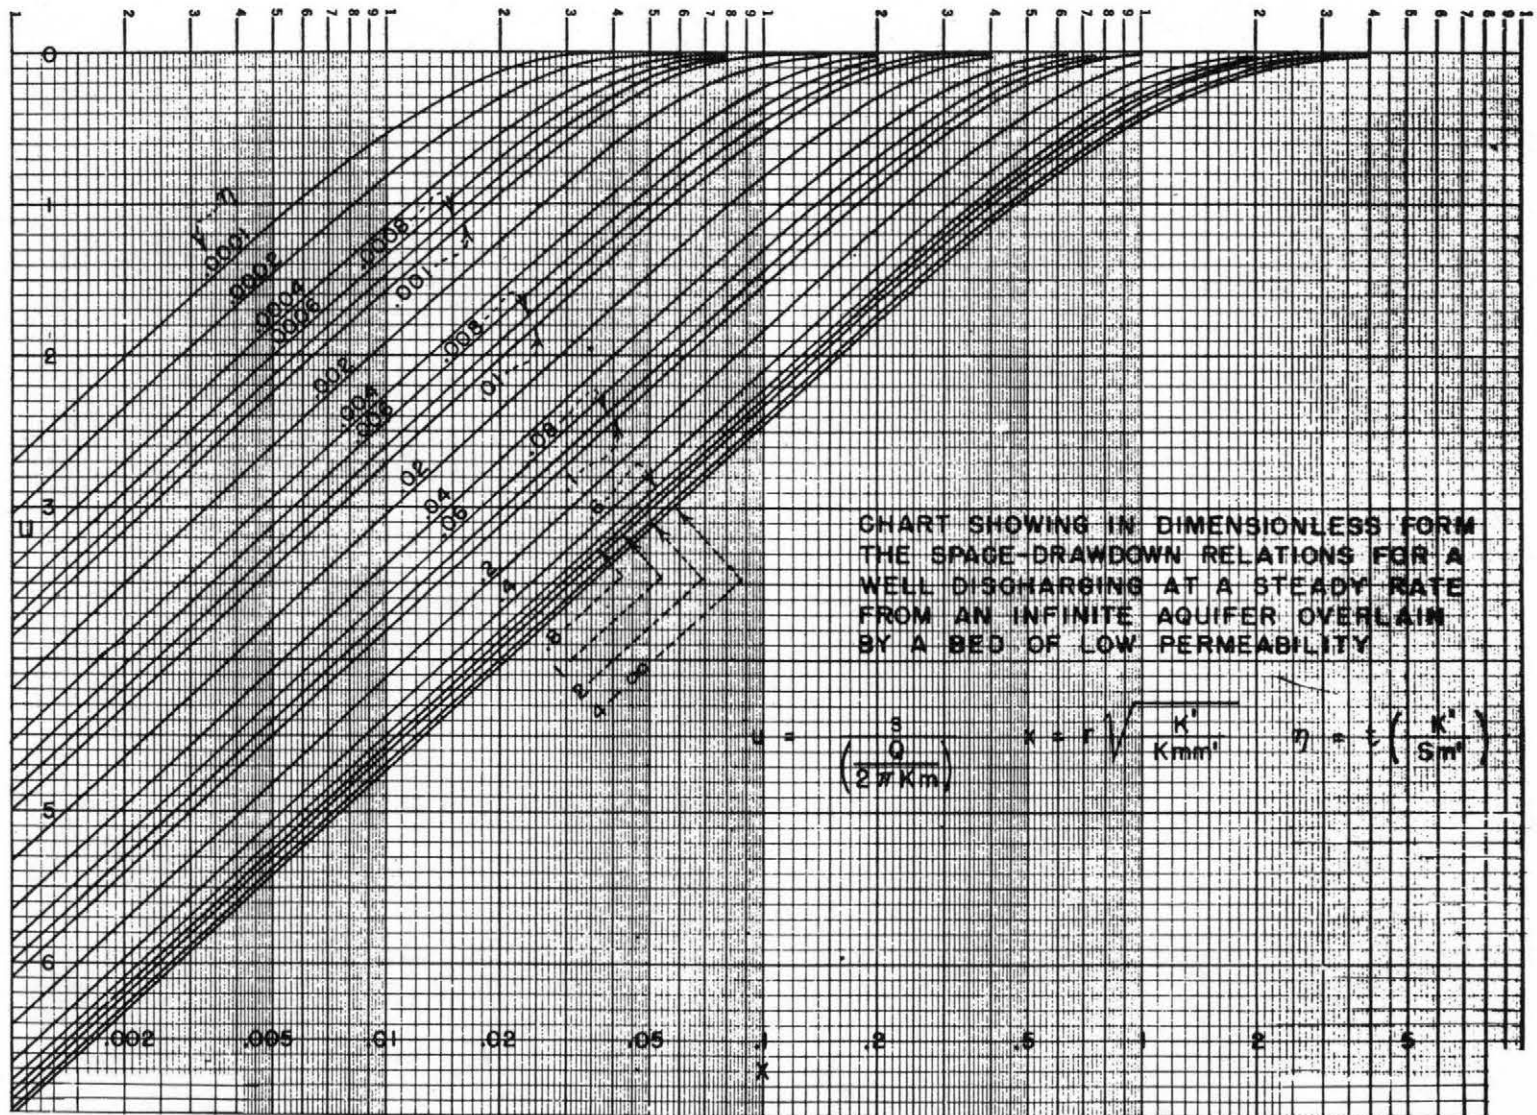 1 2 3 4 5 6 7 8 9 1 2 3 4 5 6 7 8 9 1 2 3 4 5 6 7 8 9 1 2 3 4 5 6 7 8 9 1
0
1
2
3
U
5
6
η
.0001
.0002
.0004
.0006
.0008
.001
.002
.004
.006
.008
.01
.02
.04
.06
.08
.2
.4
.6
.8
1
2
4
∞
CHART SHOWING IN DIMENSIONLESS FORM
THE SPACE-DRAWDOWN RELATIONS FOR A
WELL DISCHARGING AT A STEADY RATE
FROM AN INFINITE AQUIFER OVERLAIN
BY A BED OF LOW PERMEABILITY
u = s / (Q / 2πKm) x = r √(K' / Kmm') η = t (K' / Sm')
.002 .005 .01 .02 .05 .1 .2 .5 1 2 5
X